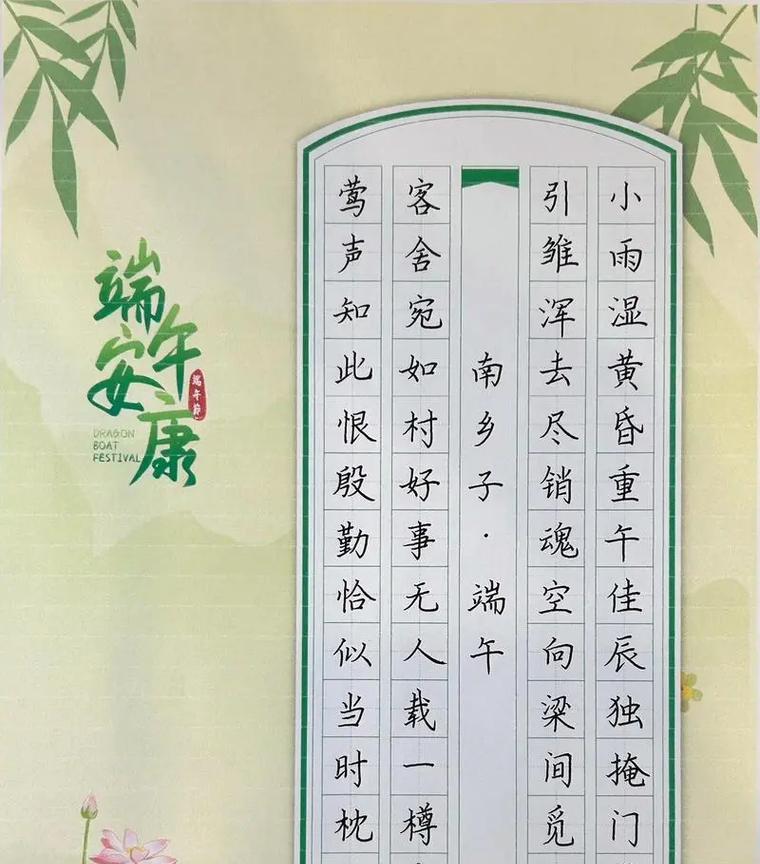 小雨湿黄昏重午佳辰独掩门
引雏浑去尽销魂空向梁间觅
南乡子·端午
客舍宛如村好事无人载一樽
莺声知此恨殷勤恰似当时枕
端午
安康
端午節
DRAGON
BOAT
FESTIVAL